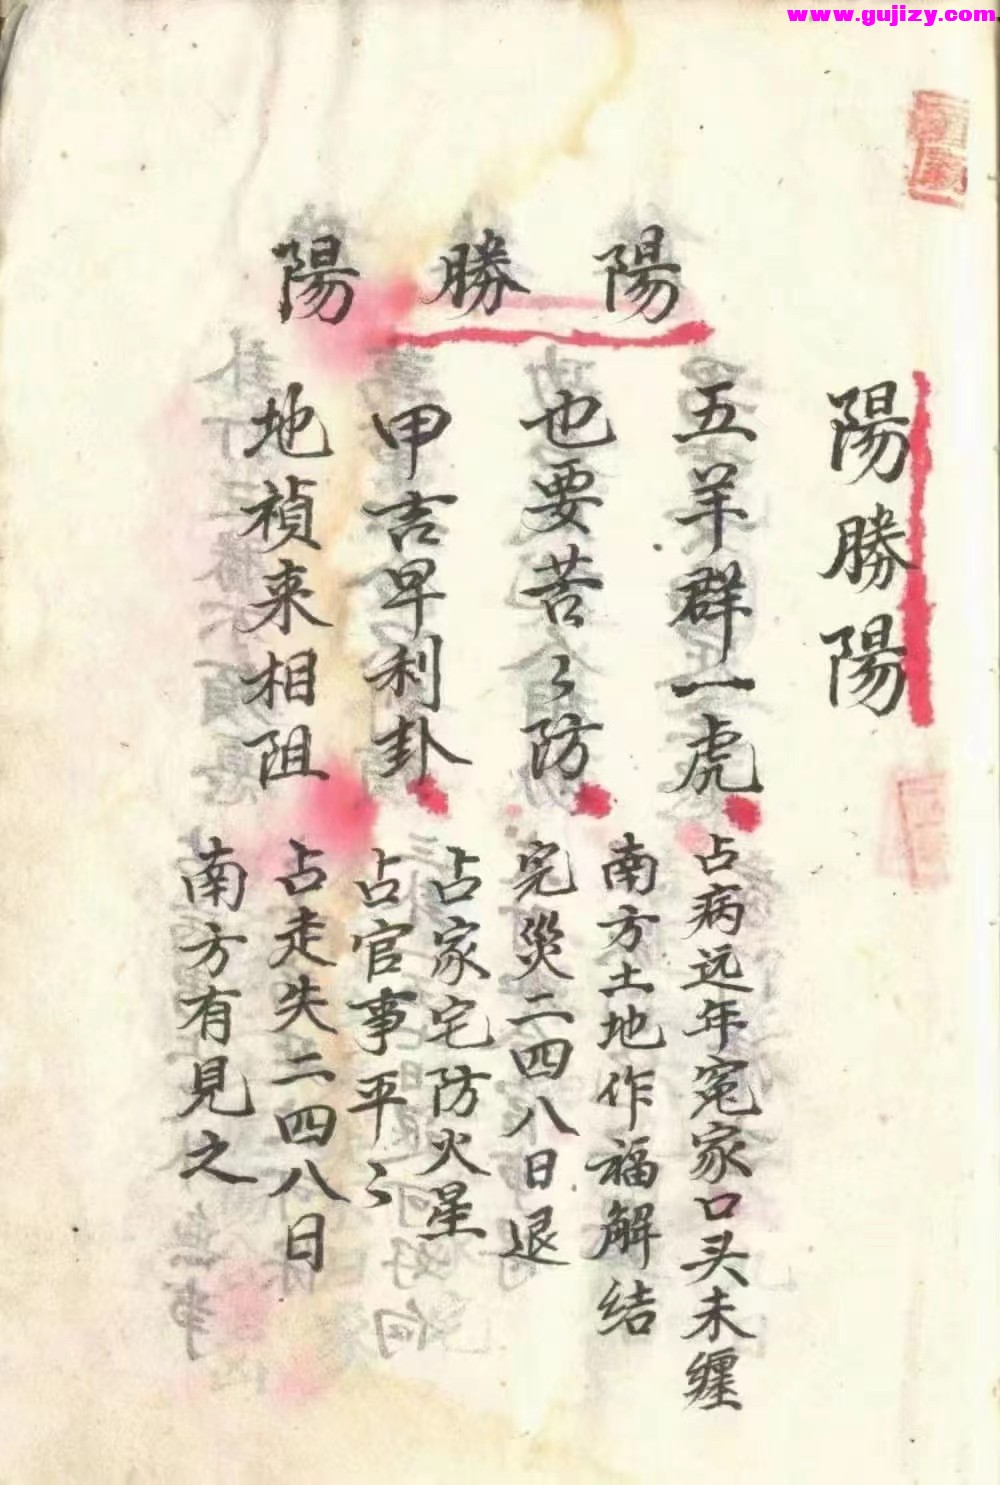 www.gujizy.com
陽勝陽
陽勝陽
五羊群一虎
也要苦々防
甲吉早利卦
地禎来相阻
占病远年寃家口头未缠
南方土地作福解结
完災二四八日退
占家宅防火星
占官事平々
占走失二四八日
南方有見之